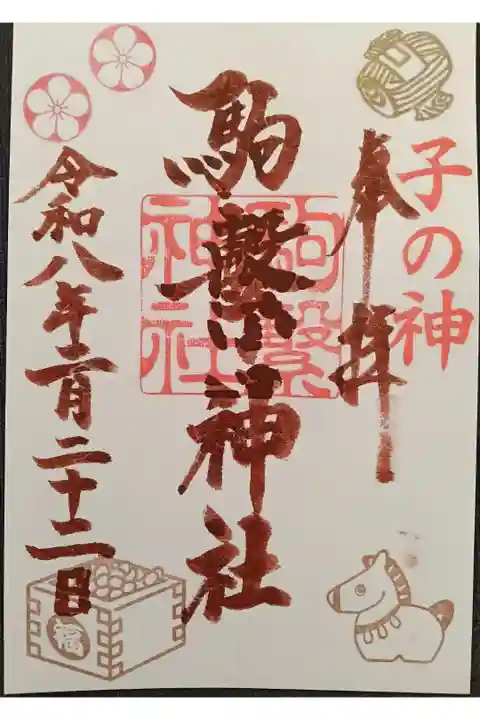 子の神
奉拝
駒繋神社
駒繋
神社
令和八年二月二十二日